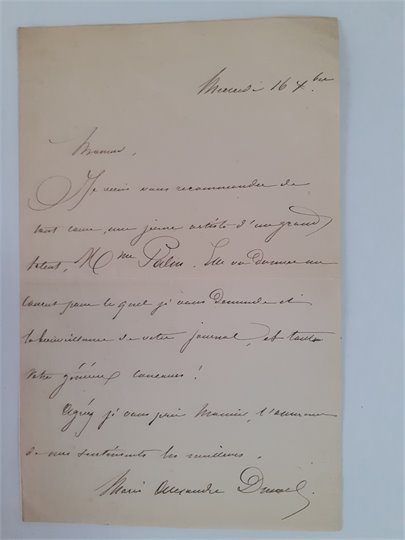 Mercredi 16 Xbre
Monsieur,
Je viens vous recommander de
tout cœur, une jeune artiste d'un grand
talent, Mme Elle va donner un
concert pour le quel je vous demande et
la bienveillance de votre journal, et toute
votre généreux concours!
Agréez je vous prie Monsieur, l'assurance
de mes sentiments les meilleurs.
Marie Alexandre Dumas